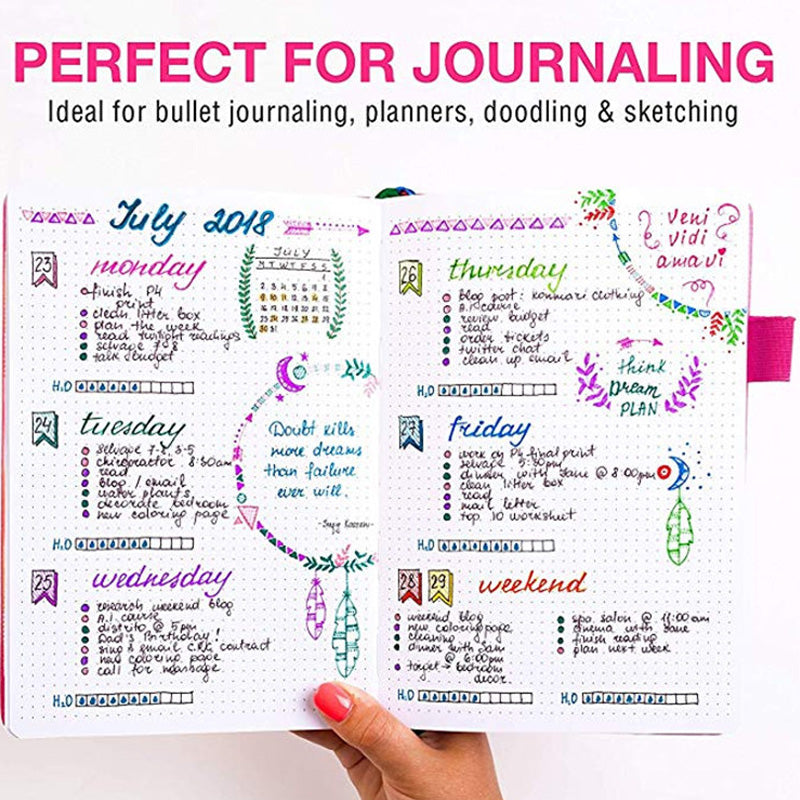 PERFECT FOR JOURNALING
Ideal for bullet journaling, planners, doodling & sketching
July 2018
23
monday
finish P4
print
clean litter box
plan the week
read twilight readings
selvage 7-8
talk budget
H2O
JULY
M T W T F S S
1
2 3 4 5 6 7 8
9 10 11 12 13 14 15
16 17 18 19 20 21 22
23 24 25 26 27 28 29
30 31
24
tuesday
selvage 7-8, 3-5
chiropractor 8:30am
read
blog / email
water plants
decorate bedroom
new coloring page
H2O
Doubt kills
more dreams
than failure
ever will.
25
wednesday
research weekend blog
A.I. course
distrito @ 5pm
Dad's Birthday!
sing & email contract
new coloring page
call for massage
H2O
veni
vidi
amavi
26
thursday
blog post: konmari clothing
A.I. course
review budget
read
order tickets
twitter chat
clean up email
H2O
think
Dream
PLAN
27
friday
work on P4 final print
selvage 5:30pm
dinner with Jane @ 8:00pm
clean litter box
read
mail letter
top 10 worksheet
H2O
28 29
weekend
weekend blog
new coloring page
cleaning
dinner with Sam
@ 6:00pm
target → bedroom
decor.
H2O
spa salon @ 11:00am
cinema with Jane
finish reading
plan next week
H2O